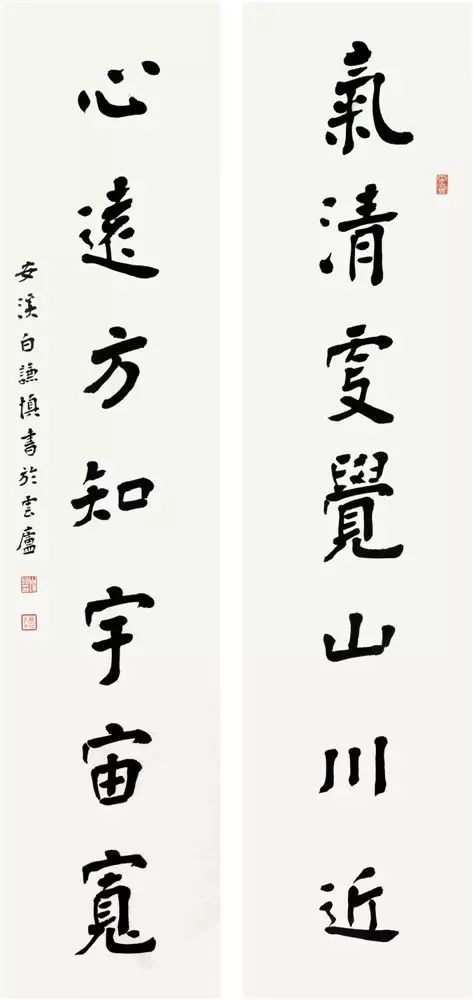 氣清更覺山川近
心遠方知宇宙寬
安溪白謙慎書於雲廬